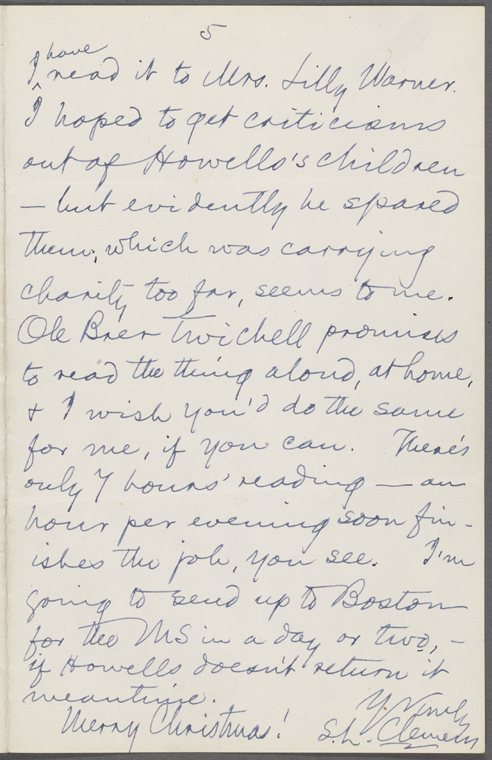 5
I have read it to Mrs. Lilly Warner.
I hoped to get criticisms
out of Howells's children
— but evidently he spared
them, which was carrying
charity too far, seems to me.
Ole Brer Twichell promises
to read the thing aloud, at home,
& I wish you'd do the same
for me, if you can. There's
only 7 hours' reading — an
hour per evening soon fin-
ishes the job, you see. I'm
going to send up to Boston
for the MS in a day or two, —
if Howells doesn't return it
meantime.
Merry Christmas! Y
S.L. Clemens